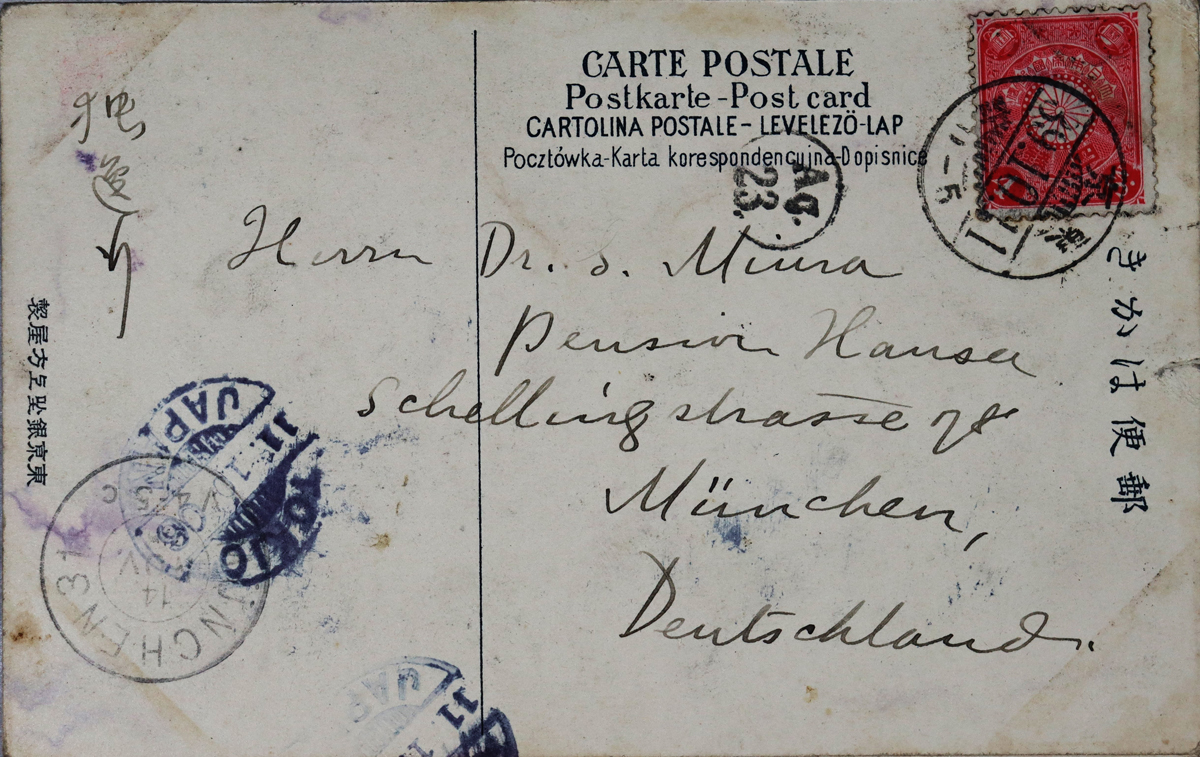 CARTE POSTALE
Postkarte-Post card
CARTOLINA POSTALE-LEVELEZÖ-LAP
Pocztówka-Karta korespondencyjna-Dopisnice
Ag.
23.
きかは便郵
Herrn Dr. S. Miura
Pension Hansa
Schellingstrasse
München,
Deutschland.
東京銀座上方屋製
TOKIO
JAPAN
MÜNCHEN 31
14
IV
V4-5
JAP